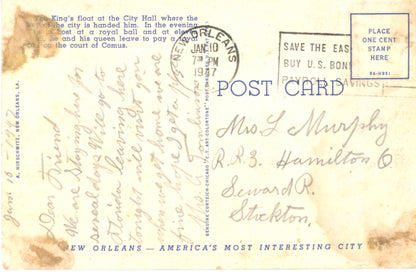 The King's float at the City Hall where the
of the city is handed him. In the evening
host at a royal ball and at eleven
he and his queen leave to pay a royal
on the court of Comus.
A. HIRSCHWITZ, NEW ORLEANS, LA.
Jan 10-1947
Dear Friend
We are staying here for
several days. Will go to
Florida leaving here
tonight will visit you
when we get home we are
fine hope I get a
Mrs
GENUINE CURTEICH-CHICAGO "C.T. ART-COLORTONE" POST CARD
NEW ORLEANS
JAN 10
7 PM
1947
SAVE THE EAS
BUY U.S. BON
PAYROLL SAVINGS
PLACE
ONE CENT
STAMP
HERE
POST CARD
Mrs L Murphy
R.R.3. Hamilton
Seward R.
Stockton.
NEW ORLEANS — AMERICA'S MOST INTERESTING CITY